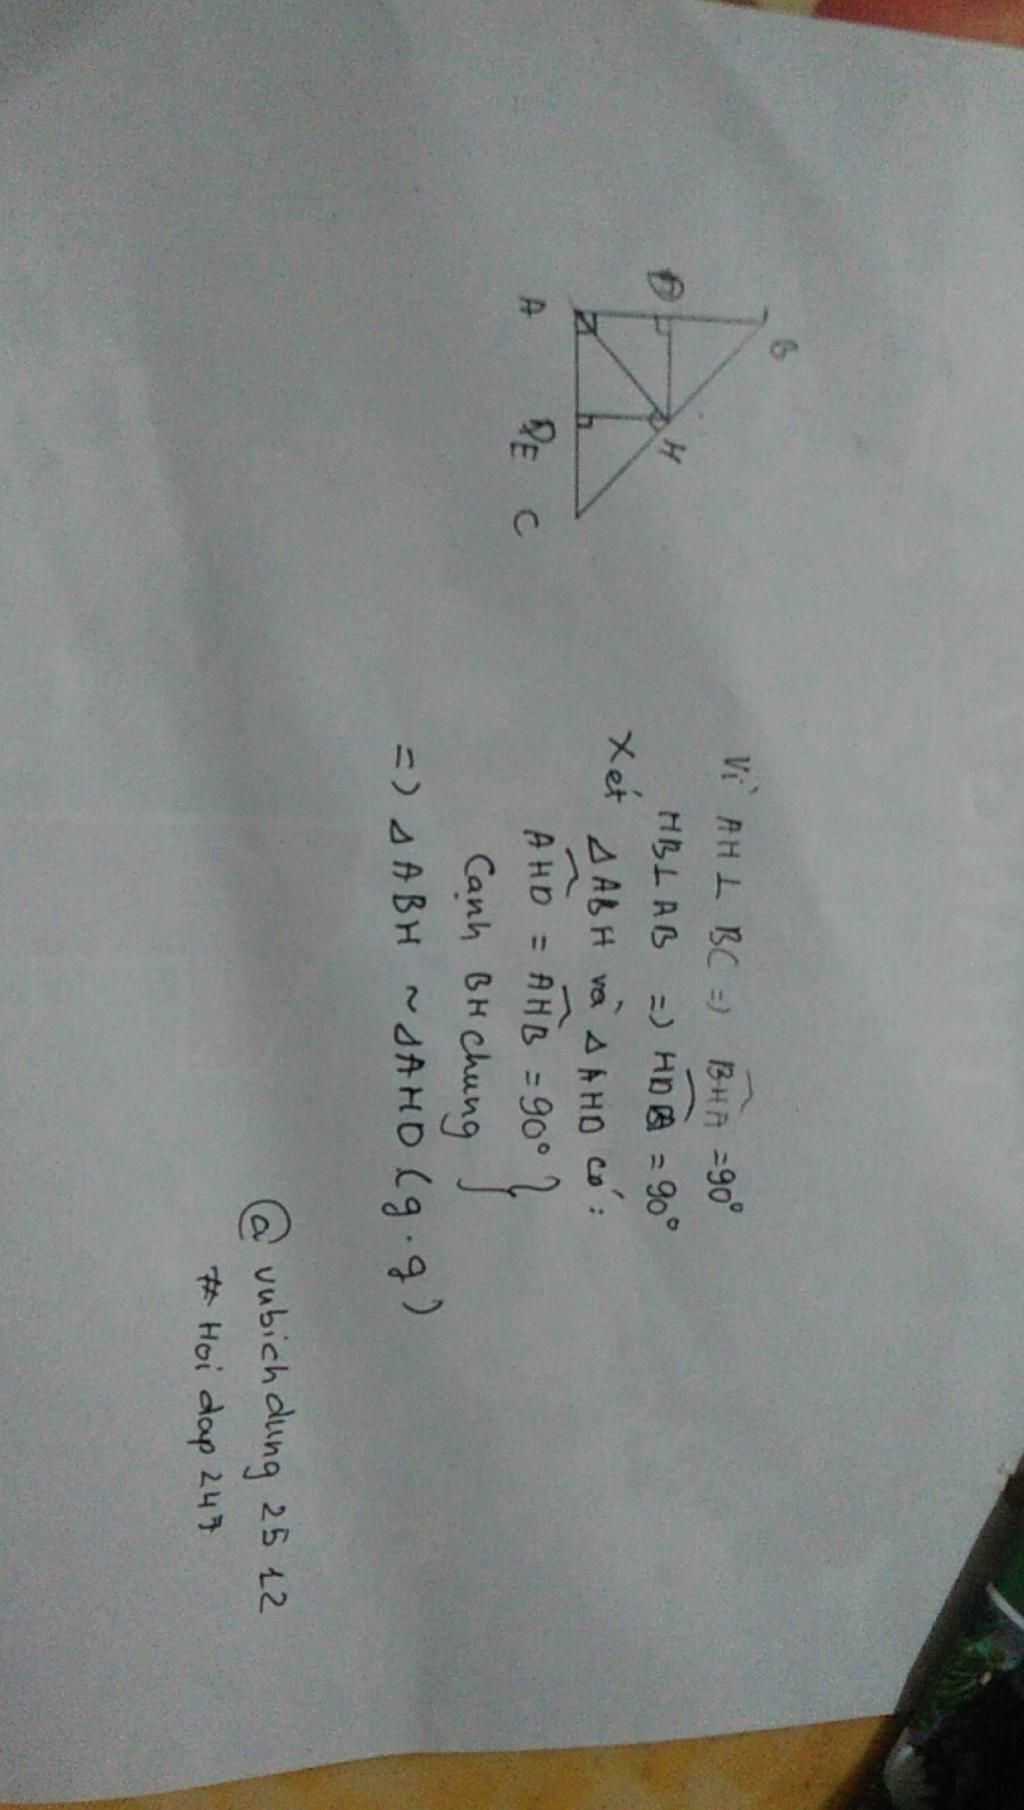 B
D
H
A
E
C
Vì AH ⊥ BC => BHA = 90°
HB ⊥ AB => HDA = 90°
Xét ΔABH và ΔAHD có:
AHD = AHB = 90° }
Cạnh BH chung }
=> ΔABH ~ ΔAHD (g.g)
@ vubichdung 25 12
# Hoi dap 247